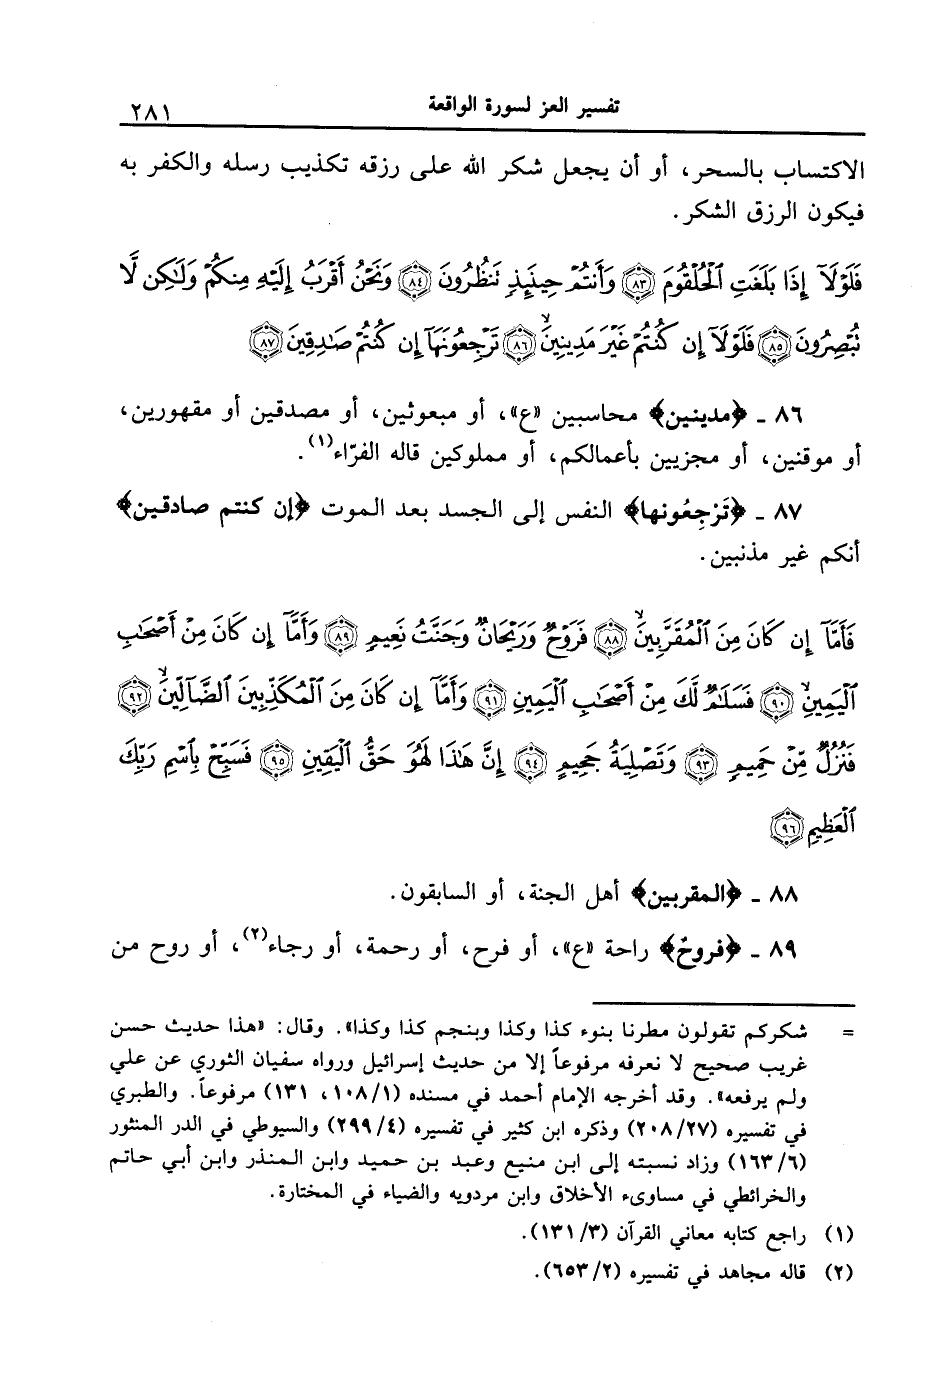 تفسير العز لسورة الواقعة ٢٨١
الاكتساب بالسحر، أو أن يجعل شكر الله على رزقه تكذيب رسله والكفر به
فيكون الرزق الشكر.
فَلَوْلَآ إِذَا بَلَغَتِ ٱلْحُلْقُومَ ﴿٨٣﴾ وَأَنتُمْ حِينَئِذٍ تَنظُرُونَ ﴿٨٤﴾ وَنَحْنُ أَقْرَبُ إِلَيْهِ مِنكُمْ وَلَٰكِن لَّا
تُبْصِرُونَ ﴿٨٥﴾ فَلَوْلَآ إِن كُنتُمْ غَيْرَ مَدِينِينَ ﴿٨٦﴾ تَرْجِعُونَهَآ إِن كُنتُمْ صَٰدِقِينَ ﴿٨٧﴾
٨٦ ـ ﴿مدينين﴾ محاسبين «ع»، أو مبعوثين، أو مصدقين أو مقهورين،
أو موقنين، أو مجزيين بأعمالكم، أو مملوكين قاله الفرّاء(١).
٨٧ ـ ﴿تَرْجِعُونها﴾ النفس إلى الجسد بعد الموت ﴿إن كنتم صادقين﴾
أنكم غير مذنبين.
فَأَمَّآ إِن كَانَ مِنَ ٱلْمُقَرَّبِينَ ﴿٨٨﴾ فَرَوْحٌ وَرَيْحَانٌ وَجَنَّتُ نَعِيمٍ ﴿٨٩﴾ وَأَمَّآ إِن كَانَ مِنْ أَصْحَٰبِ
ٱلْيَمِينِ ﴿٩٠﴾ فَسَلَٰمٌ لَّكَ مِنْ أَصْحَٰبِ ٱلْيَمِينِ ﴿٩١﴾ وَأَمَّآ إِن كَانَ مِنَ ٱلْمُكَذِّبِينَ ٱلضَّآلِّينَ ﴿٩٢﴾
فَنُزُلٌ مِّنْ حَمِيمٍ ﴿٩٣﴾ وَتَصْلِيَةُ جَحِيمٍ ﴿٩٤﴾ إِنَّ هَٰذَا لَهُوَ حَقُّ ٱلْيَقِينِ ﴿٩٥﴾ فَسَبِّحْ بِٱسْمِ رَبِّكَ
ٱلْعَظِيمِ ﴿٩٦﴾
٨٨ ـ ﴿المقربين﴾ أهل الجنة، أو السابقون.
٨٩ ـ ﴿فروحٌ﴾ راحة «ع»، أو فرح، أو رحمة، أو رجاء(٢)، أو روح من
= شكركم تقولون مطرنا بنوء كذا وكذا وبنجم كذا وكذا». وقال: «هذا حديث حسن
غريب صحيح لا نعرفه مرفوعاً إلا من حديث إسرائيل ورواه سفيان الثوري عن علي
ولم يرفعه». وقد أخرجه الإمام أحمد في مسنده (١/ ١٠٨، ١٣١) مرفوعاً. والطبري
في تفسيره (٢٧/ ٢٠٨) وذكره ابن كثير في تفسيره (٤/ ٢٩٩) والسيوطي في الدر المنثور
(٦/ ١٦٣) وزاد نسبته إلى ابن منيع وعبد بن حميد وابن المنذر وابن أبي حاتم
والخرائطي في مساوىء الأخلاق وابن مردويه والضياء في المختارة.
(١) راجع كتابه معاني القرآن (٣/ ١٣١).
(٢) قاله مجاهد في تفسيره (٢/ ٦٥٣).